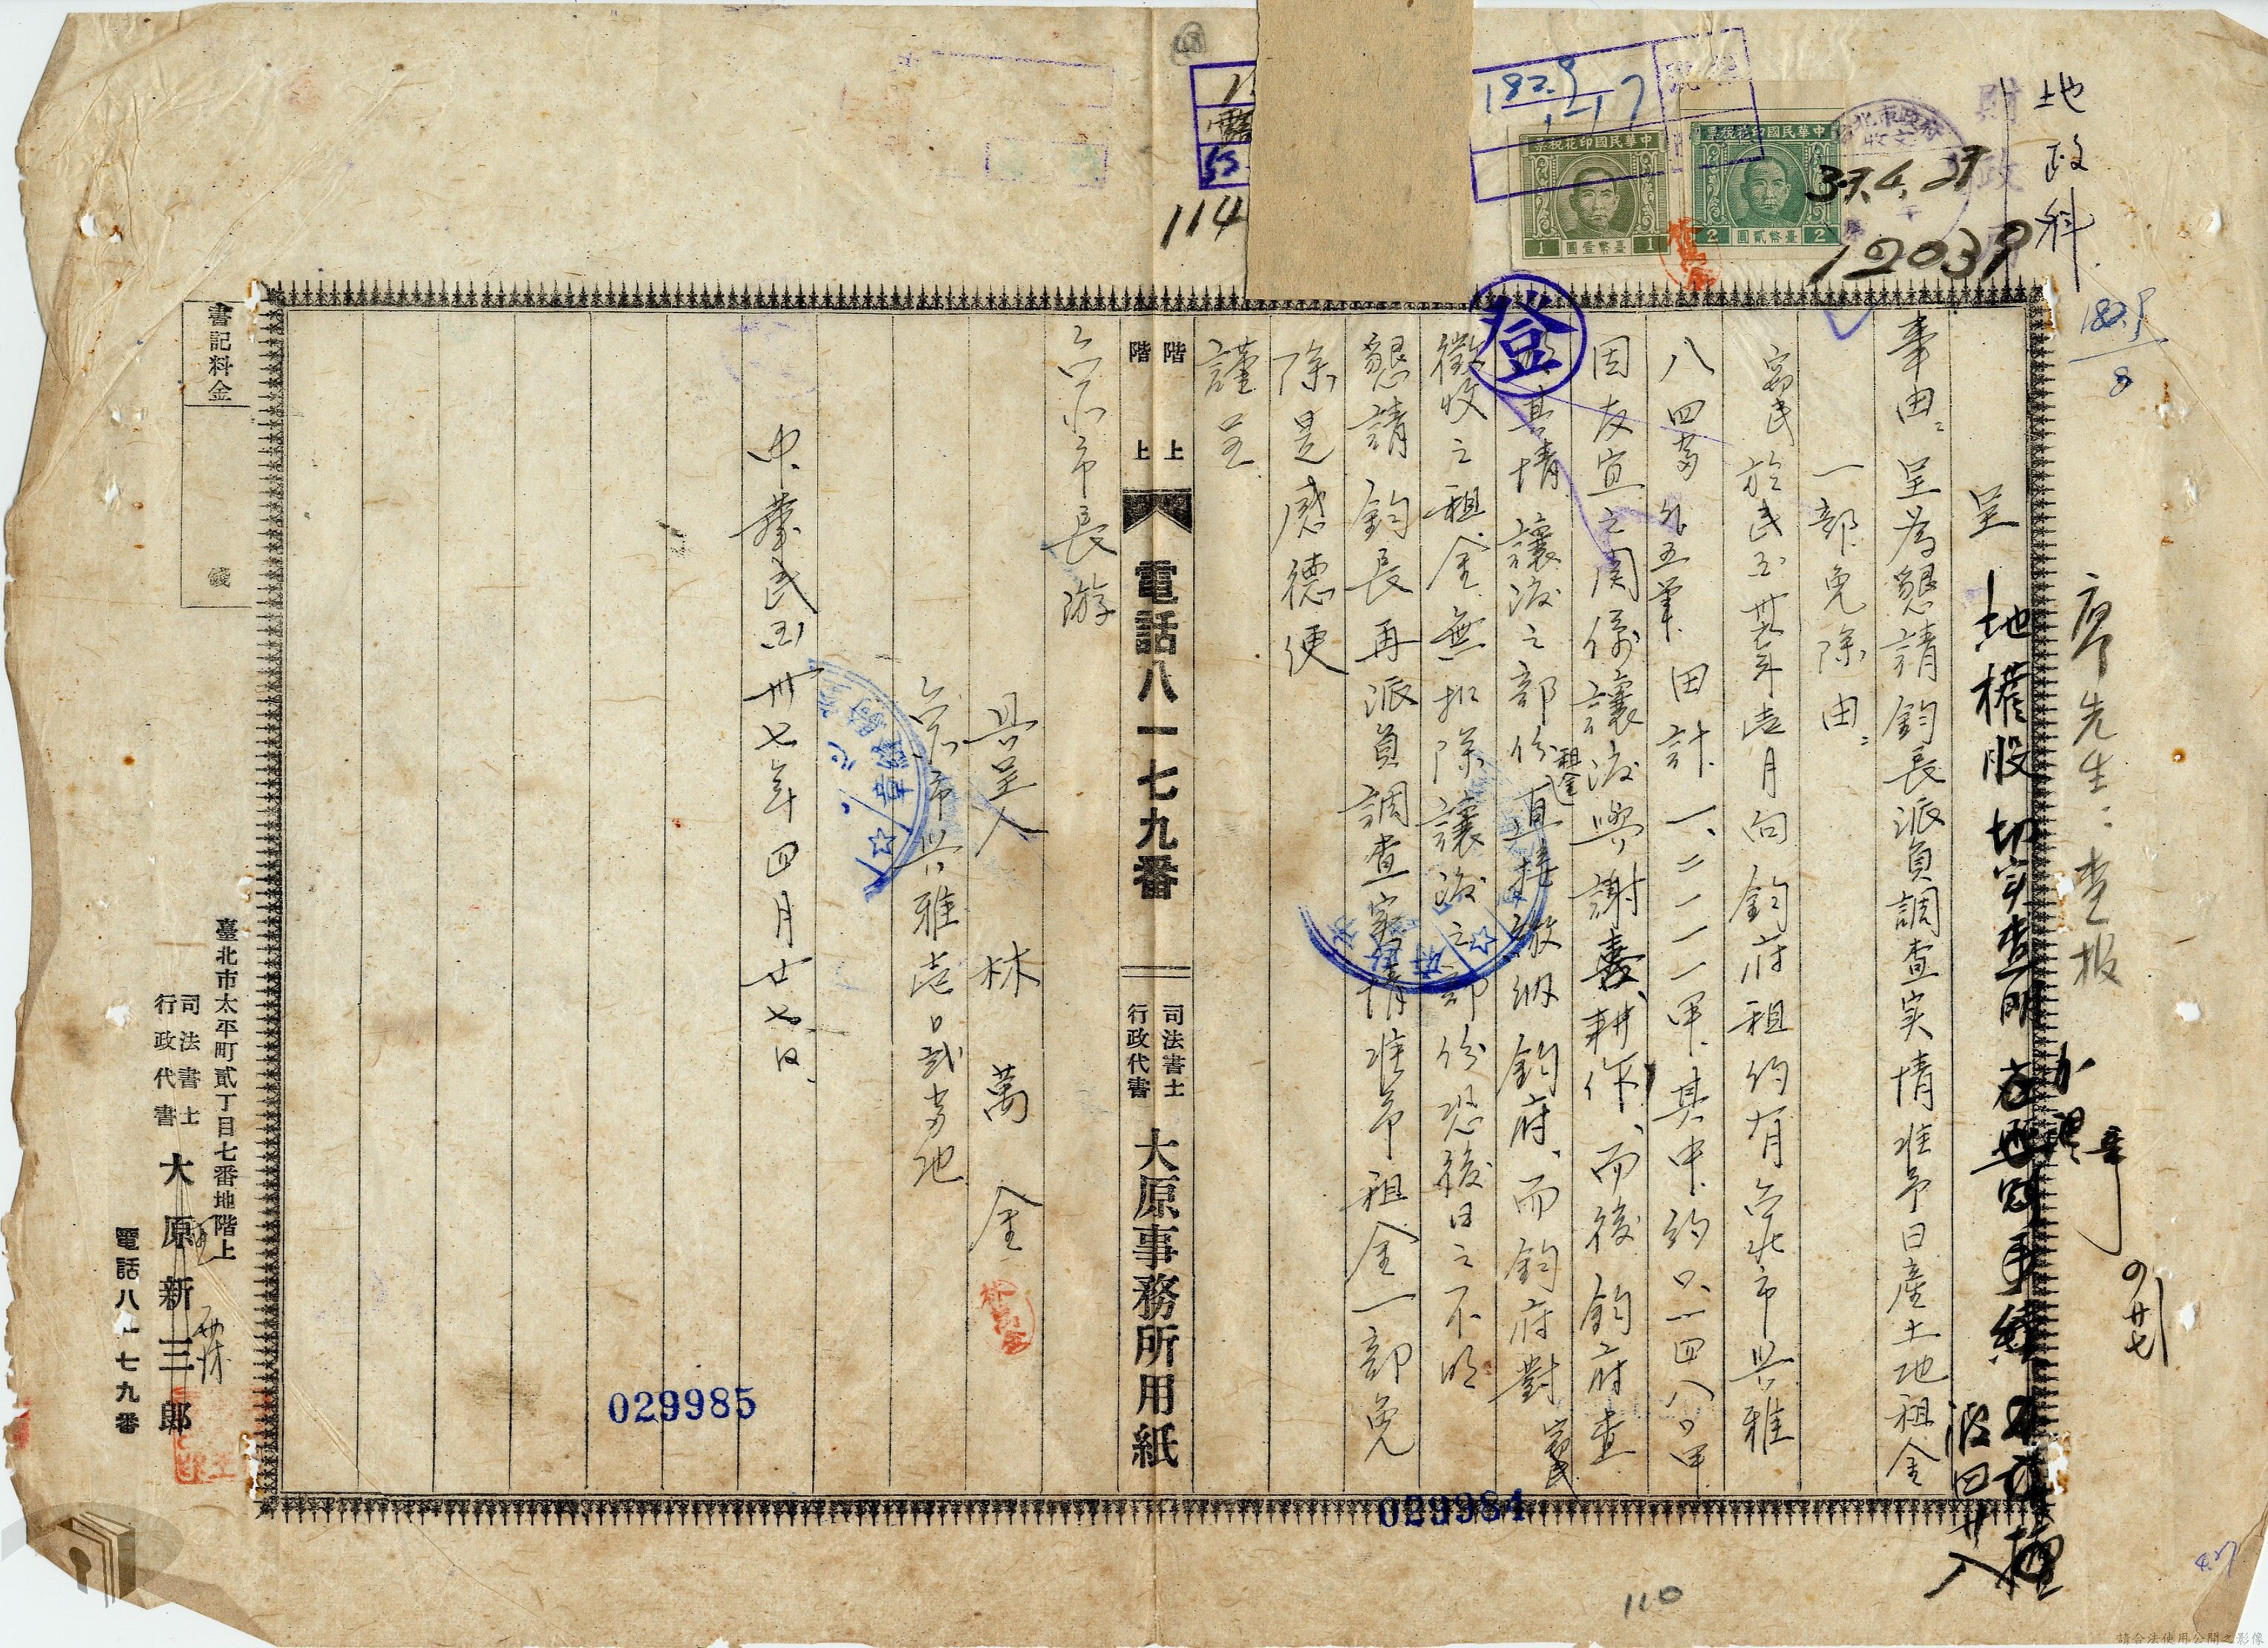 地政科
財政
37.4.27
12039
中華民國印花稅票
2 臺幣貳圓 2
中華民國印花稅票
1 臺幣壹圓 1
登
114
廖先生：查报
の廿七
呈
地權股切實查明
四廿八
事由：呈為懇請鈞長派員調查実情准予日產土地租金
一部免除由：
窮民於民国卅五年壱月向鈞府租約有台北市兴雅
八四番外五筆田計一、二一一一甲其中約〇、一四八〇甲
因友宜之関係讓渡與謝喜耕作而後鈞府查
其情讓渡之部份租金直接繳納鈞府、而鈞府對窮民
徵收之租金無扣除讓渡之部份恐後日之不明
懇請鈞長再派員調查實情准予租金一部免
除是感德便
謹呈
階上 階上
電話八一七九番
司法書士
行政代書
大原事務所用紙
台北市長游
具呈人 林萬金
台北市兴雅壱〇弍番地
中華民国卅七年四月廿七日
029985
029984
110
書記料金
錢
臺北市太平町貳丁目七番地階上
司法書士
行政代書
大原新三郎
電話八一七九番
請合法使用公開之影像